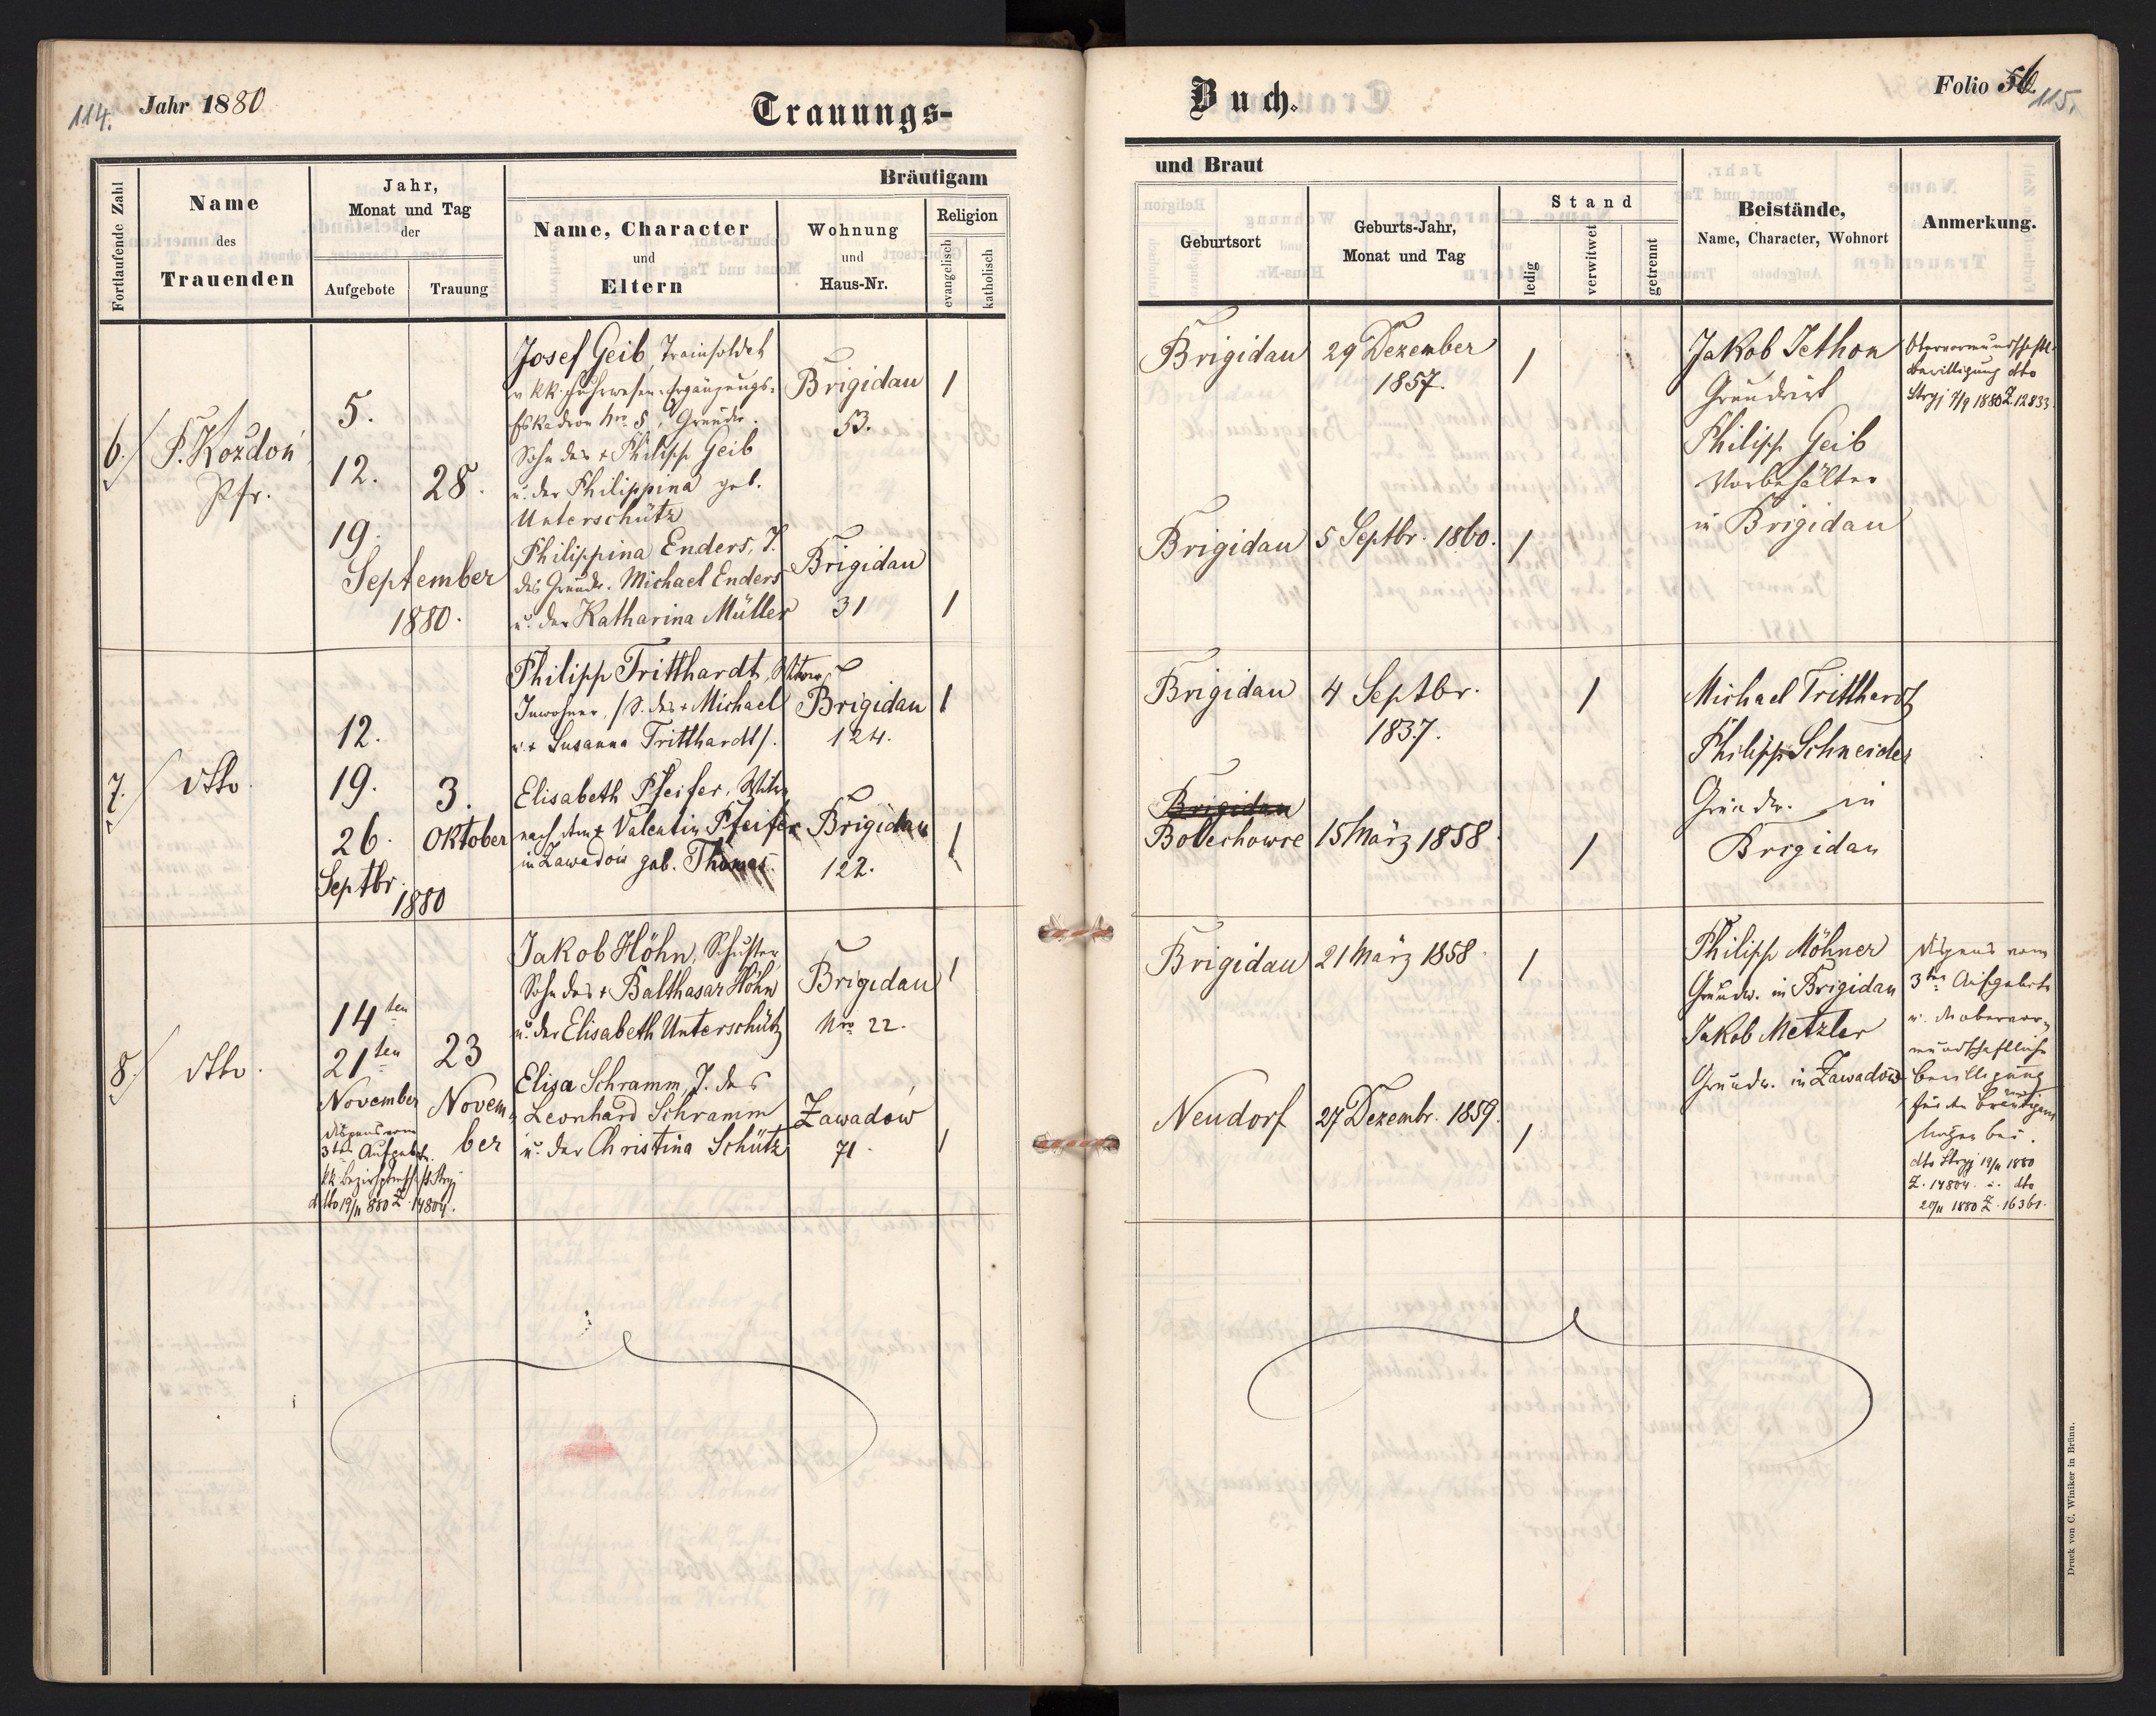 114.
Jahr 1880
Trauungs-
Fortlaufende Zahl
Name
des
Trauenden
Jahr,
Monat und Tag
der
Aufgebote
Trauung
Bräutigam
Name, Character
und
Eltern
Wohnung
und
Haus-Nr.
Religion
evangelisch
katholisch
6.
F. Kozdoń
Pfr.
5.
12.
19.
28.
September
1880.
Josef Geib, Trainsoldat
v. kk. Fuhrwesen-Ergänzungs-
Eskadron Nro 5, Grundw.
Sohn des + Philipp Geib
u. der Philippina geb.
Unterschütz
Brigidau
53.
1
Philippina Enders, T.
des Grundw. Michael Enders
u. der Katharina Müller
Brigidau
31
1
7.
dtto.
12.
19.
26.
Septbr.
3.
Oktober
1880
Philipp Tritthardt, Witwer,
Inwohner, /S. des + Michael
u. + Susanna Tritthardt/.
Brigidau
124.
1
Elisabeth Pfeifer, Witw.
nach dem + Valentin Pfeifer
in Zawadów geb. Thomas.
Brigidau
122.
1
8.
dtto.
14ten
21ten
November
Dispens vom
3ten Aufgebot.
kk. Bezirkshptmschaft Stryj
ddto 19/11 880 Z. 14804.
23
Novem-
ber
Jakob Höhn, Schuster,
Sohn des + Balthasar Höhn
u. der Elisabeth Unterschütz
Brigidau
Nro 22.
1
Elisa Schramm, T. des
Leonhard Schramm
u. der Christina Schütz
Zawadów
71.
1
Buch.
Folio 56.
115.
und Braut
Geburtsort
Geburts-Jahr,
Monat und Tag
Stand
ledig
verwitwet
getrennt
Beistände,
Name, Character, Wohnort
Anmerkung.
Brigidau
29 Dezember
1857.
1
Jakob Jethon
Grundwirt
Philipp Geib
Vorbehälter
in Brigidau
Obervormundschaftl.
bewilligung dto
Stryj 7/9 1880 Z. 12833.
Brigidau
5 Septbr. 1860.
1
Brigidau
4 Septbr.
1837.
1
Michael Tritthardt
Philipp Schneider
Grundw. in
Brigidau
Brigidau
Bollechowce
15 März 1858.
1
Brigidau
21 März 1858.
1
Philipp Möhner
Grundw. in Brigidau
Jakob Metzler
Grundw. in Zawadów
Dispens vom
3ten Aufgebote
u. die obervor-
mundschaftliche
Bewilligung
für den Bräutigam
liegen bei.
dto Stryj 19/11 1880
Z. 14804. u. dto
20/11 1880 Z. 16361.
Neudorf
27 Dezembr. 1859.
1
Druck von C. Winiker in Brünn.